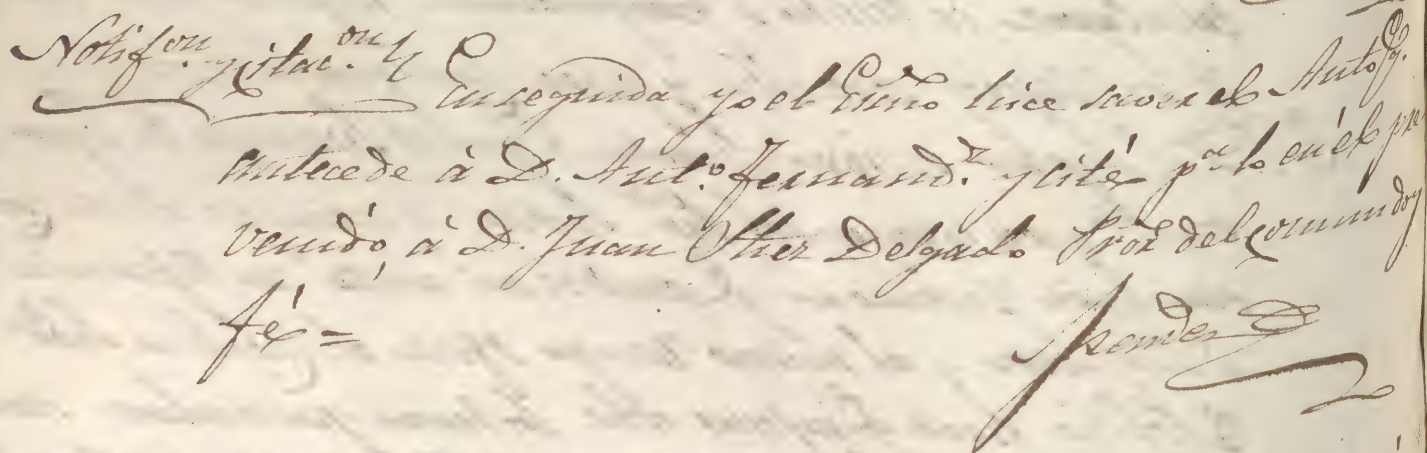 Notifon. y citacon. //
En seguida yo el Essno hice saver el Auto q.
antecede à D. Anto. Fernandz. y cité pa. lo en él pre
venido, à D. Juan Delgado Pror del comun doy
fé =